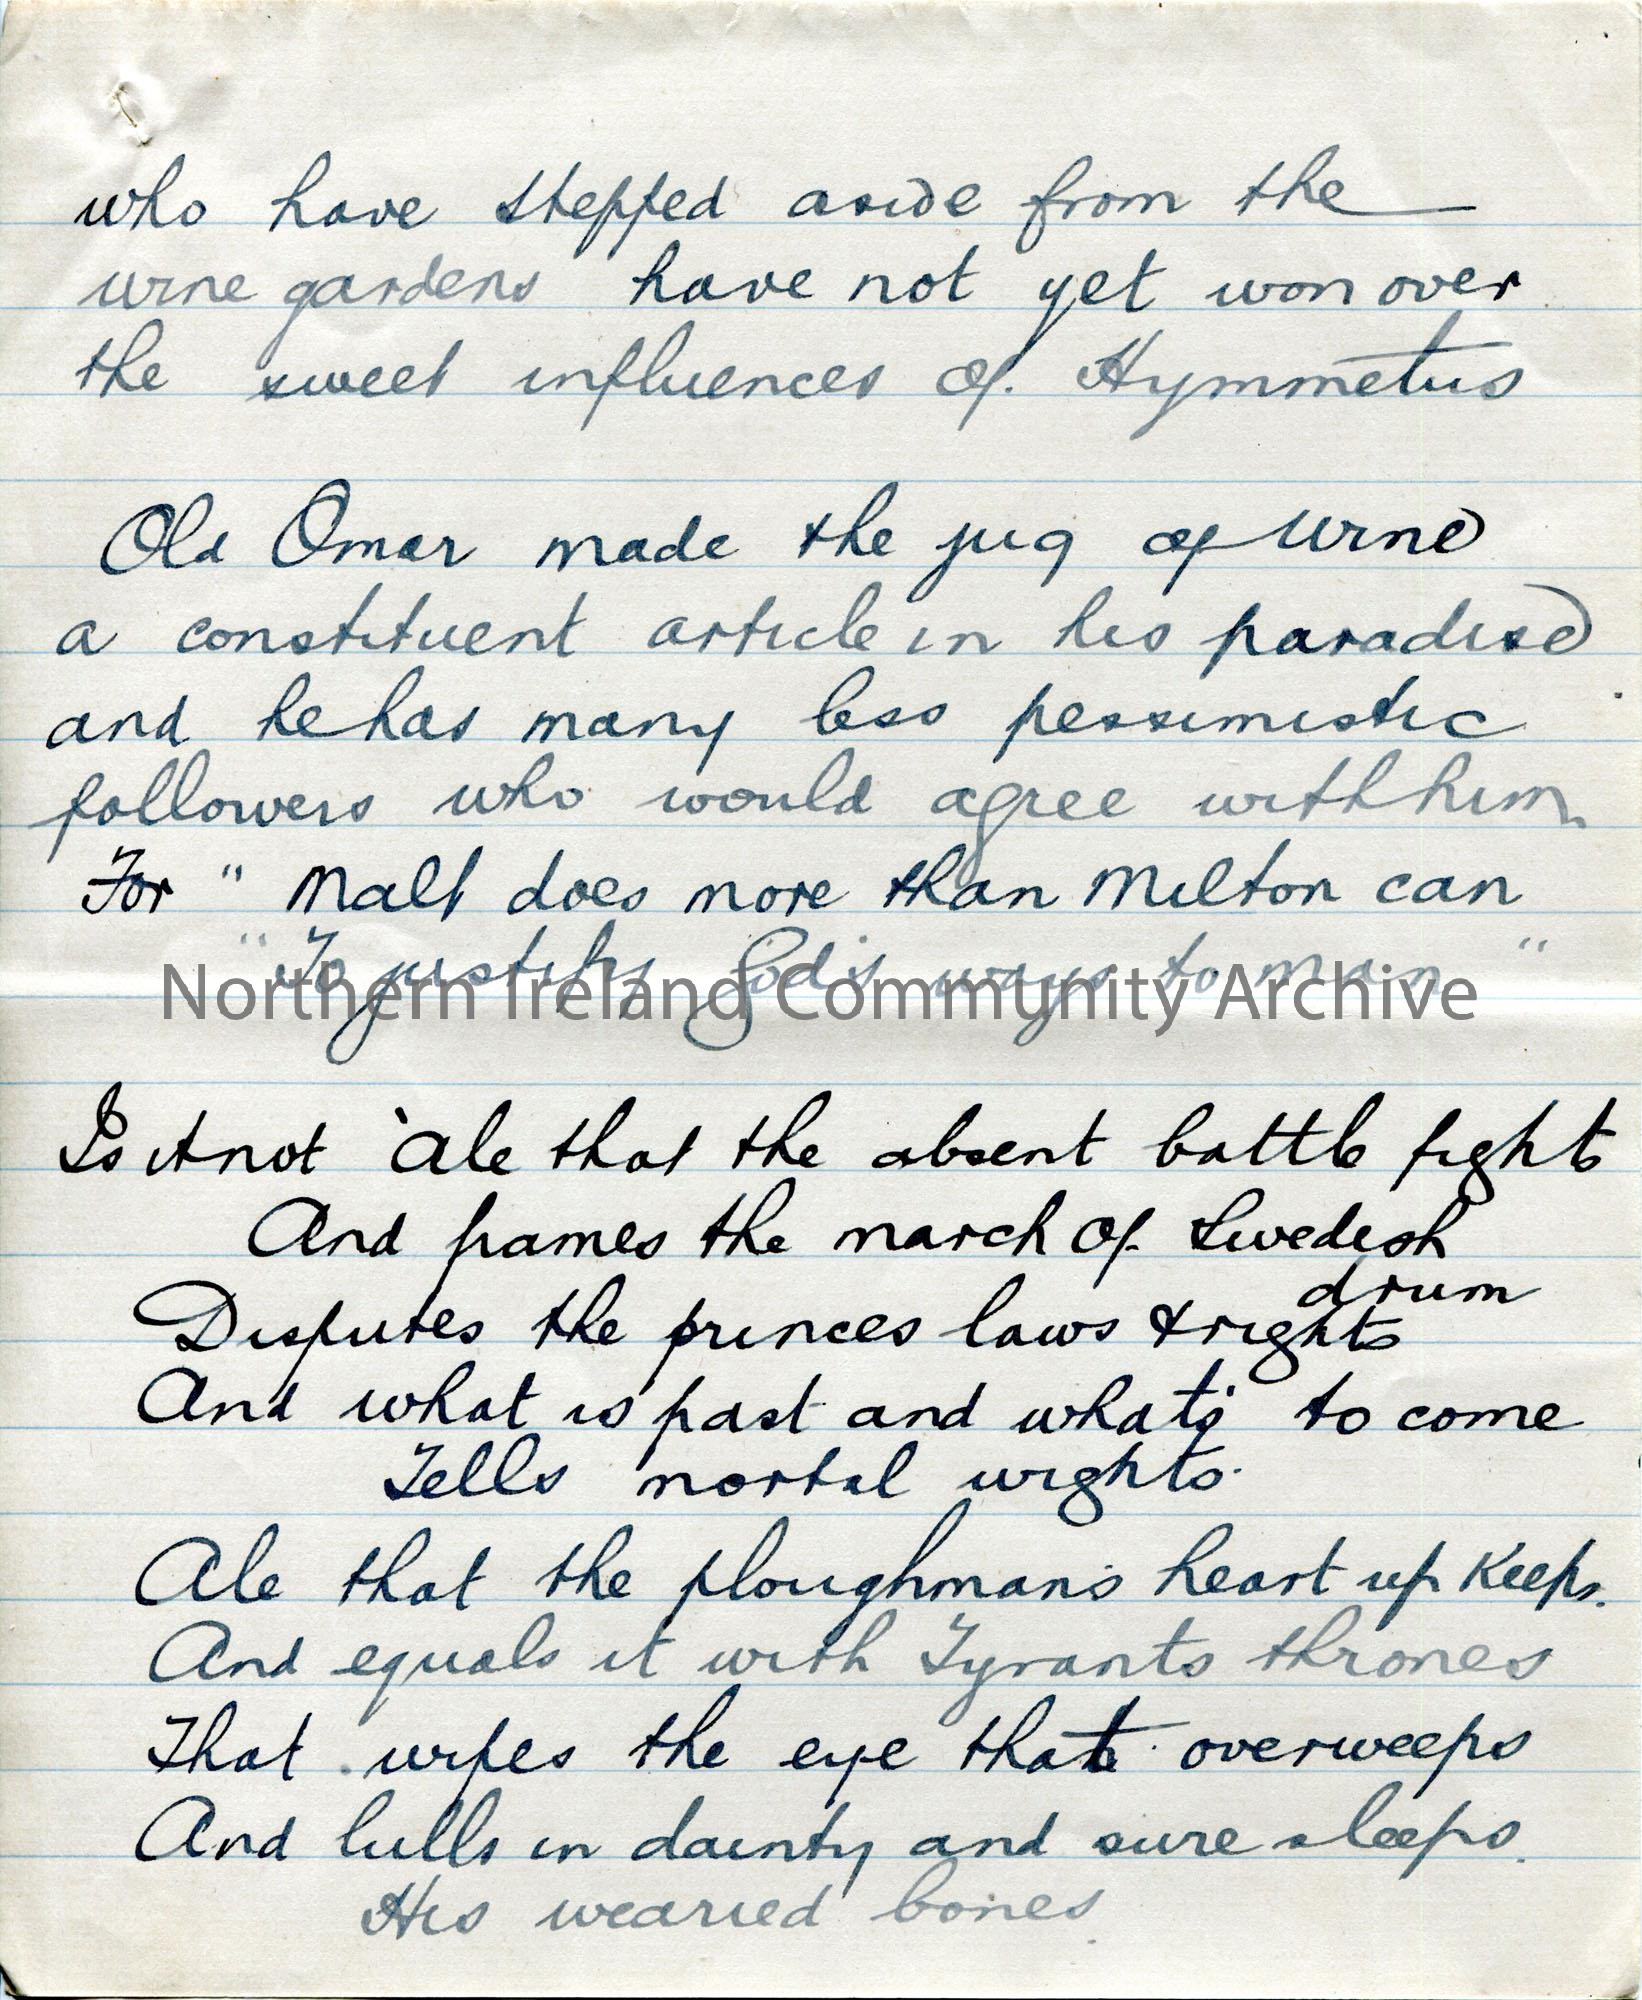 who have stepped aside from the
wine gardens have not yet won over
the sweet influences of Hymmetus
Old Omar made the jug of wine
a constituent article in his paradise
and he has many less pessimistic
followers who would agree with him
For " Malt does more than Milton can
"To justify God's ways to man"
Northern Ireland Community Archive
Is it not 'ale that the absent battle fights
And frames the march of Swedish
drum
Disputes the princes laws & rights
And what is past and what's to come
Tells mortal wights.
Ale that the ploughman's heart up keeps.
And equals it with Tyrants thrones
That wipes the eye that overweeps
And lulls in dainty and sure sleeps.
His wearied bones.